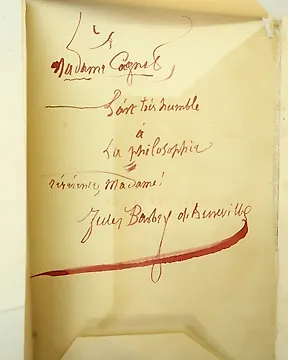 à
Madame Cognet,
L'art très humble
à
La philosophie
Madame!
Jules Barbey d'Aurevilly